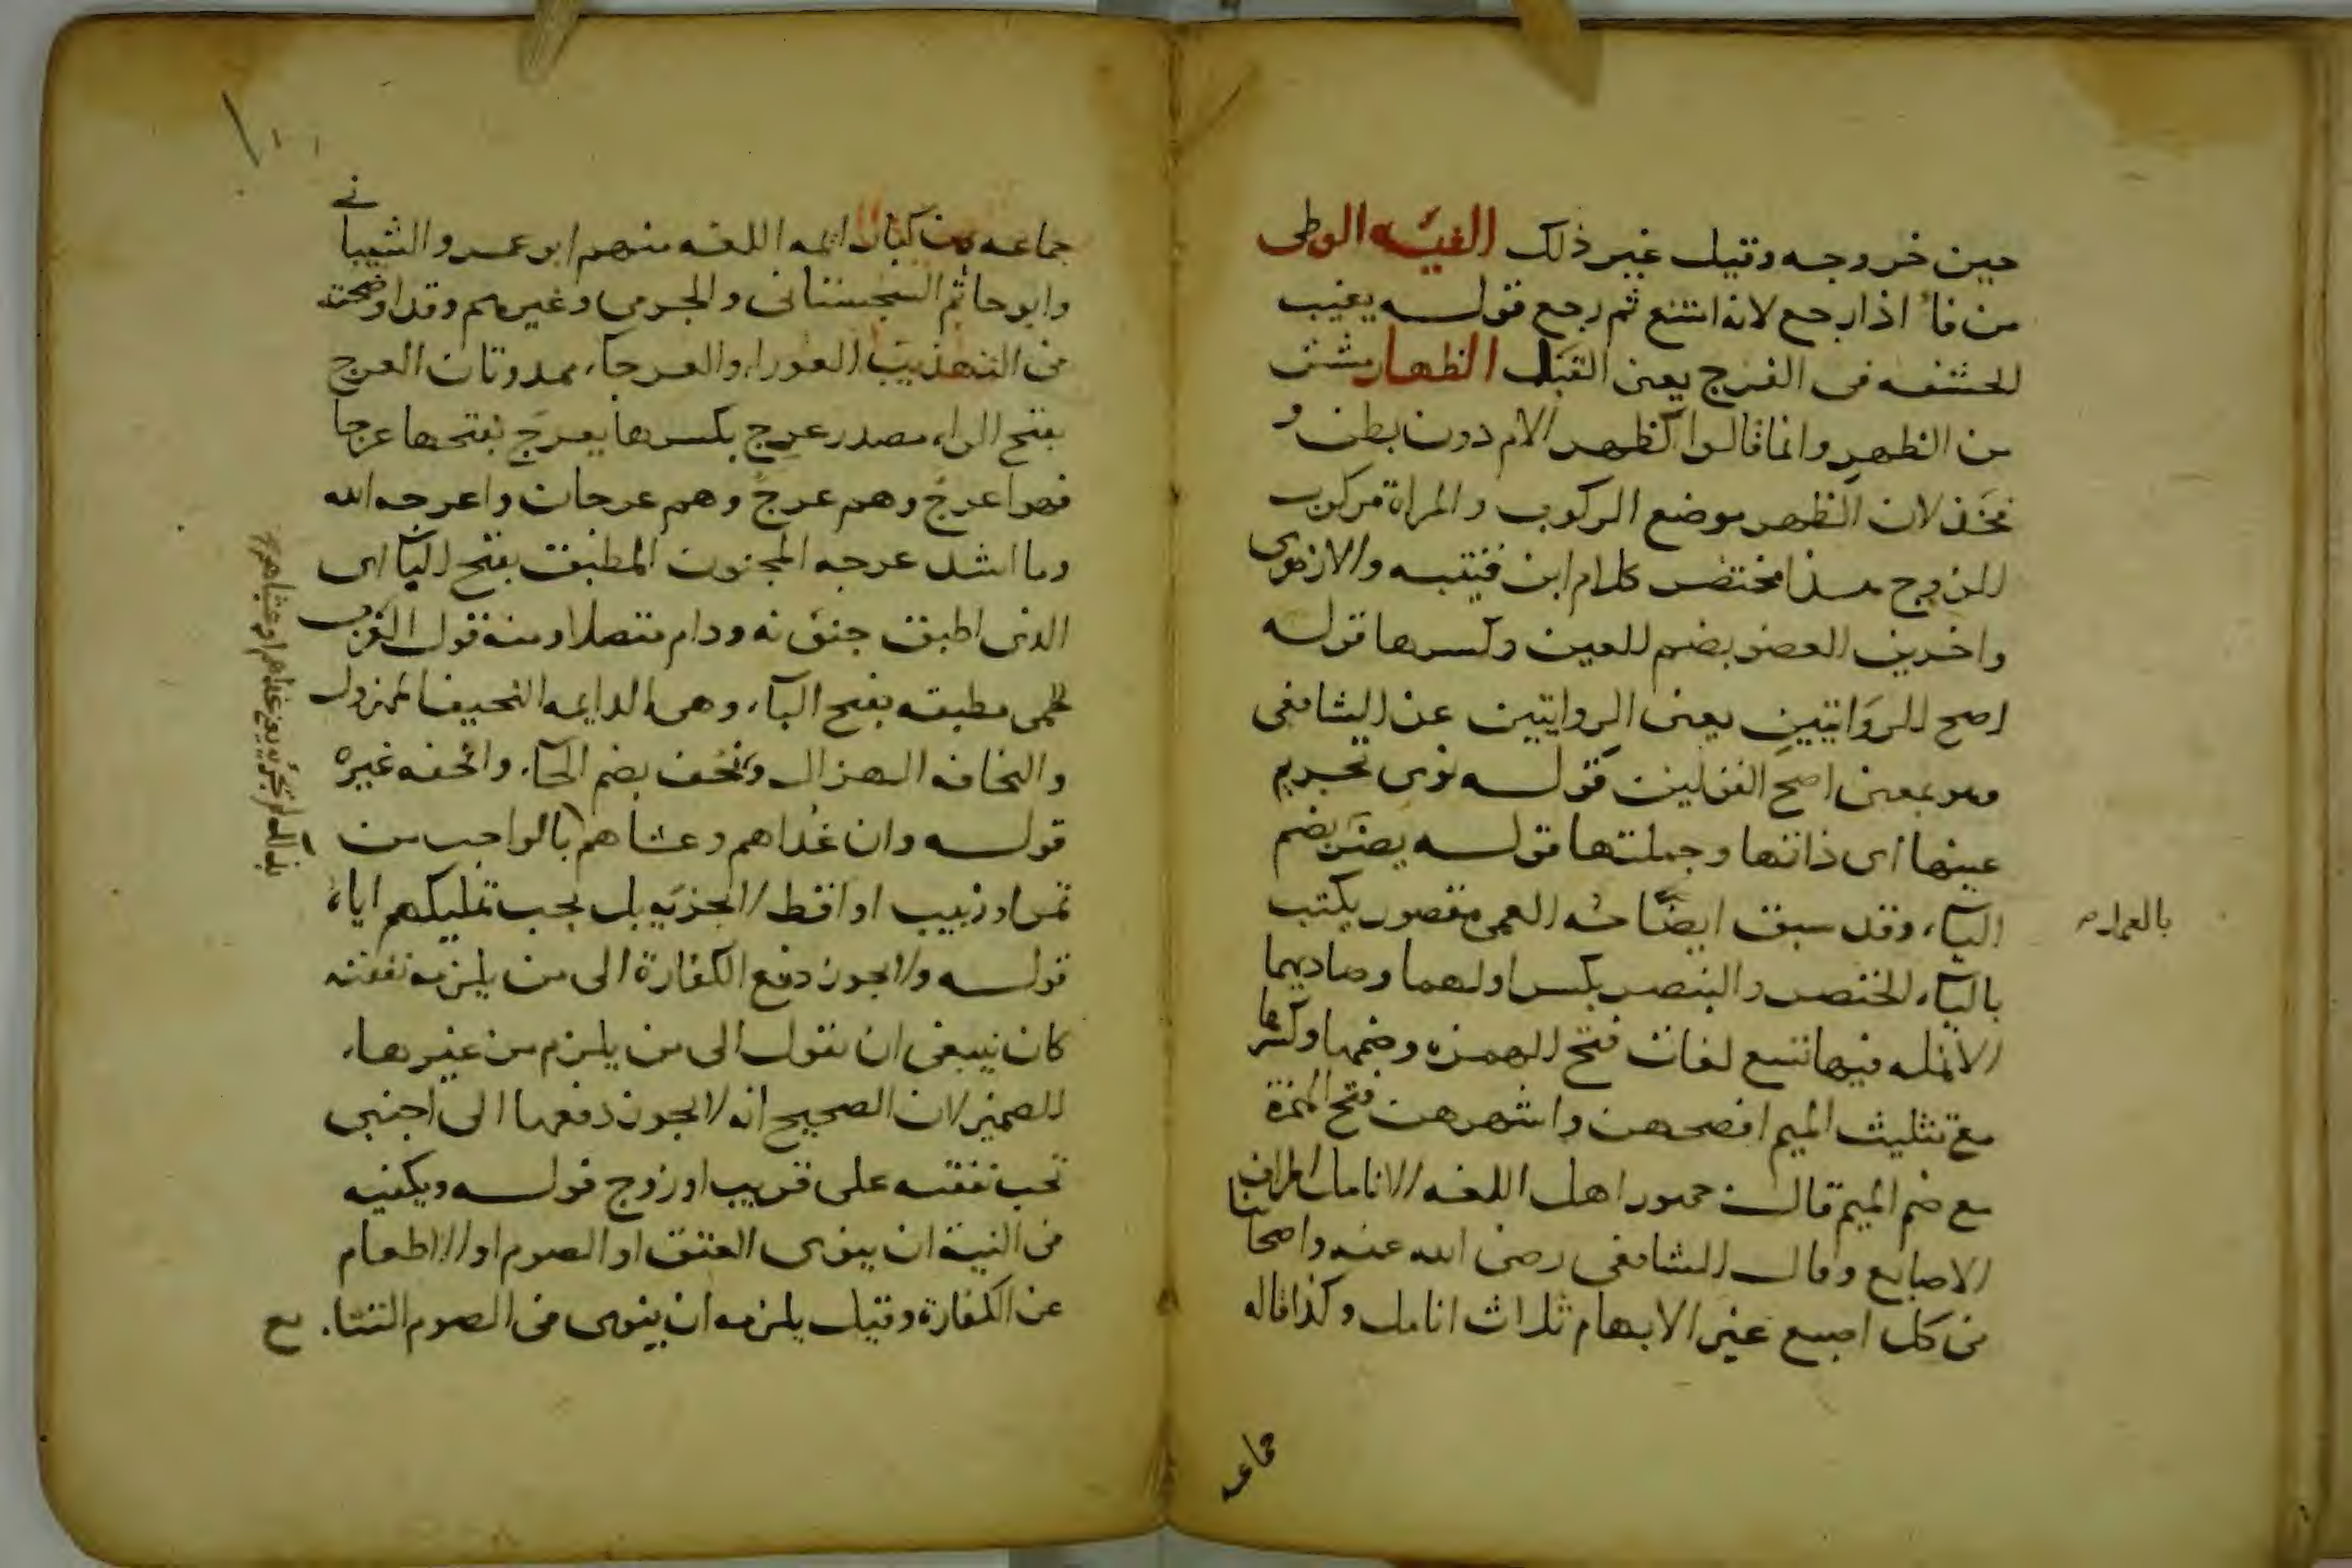 حين خروجه وقيل غير ذلك الفيئه الوطى
من فأ اذا رجع لانه امتنع ثم رجع قوله يغيب
الحشفه فى الفرج يعنى القبل الظهار مشتق
من الظهر وانما قالوا كظهر الام دون بطن و
فخذ لان الظهر موضع الركوب والمراة مركوب
للزوج هذا مختصر كلام ابن قتيبه والازهرى
واخرين العضو بضم العين وكسرها قوله
اصح الروايتين يعنى الروايتين عن الشافعى
وهو بمعنى اصح القولين قوله نوى تحريم
عينها اى ذاتها وجملتها قوله يضر بضم
اليآء وقد سبق ايضا العمى مقصور يكتب
باليآء الخنصر والبنصر بكسر اولهما وصاديهما
الانمله فيها تسع لغات فتح الهمزه وضمها وكسرها
مع تثليث الميم افصحهن واشهرهن فتح الهمزة
مع ضم الميم قال جمهور اهل اللغه الانامل اطراف
الاصابع وقال الشافعى رضى الله عنه واصحابنا
فى كل اصبع غير الابهام ثلاث انامل وكذا قاله
جماعه
بالعمل
جماعه من كبار ايمه اللغه منهم ابو عمرو الشيبانى
وابو حاتم السجستانى والجرمى وغيرهم وقد اوضحته
فى التهذيب العورا والعرجآء ممدودتان العرج
بفتح الراء مصدر عرج بكسرها يعرج بفتحها عرجا
فهو اعرج وهم عرج وهم عرجان واعرجه الله
وما اشد عرجه المجنون المطبق بفتح البآ اى
الذى اطبق جنونه ودام متصلا ومنه قول العرب
الحمى مطبقه بفتح البآء وهى الدايمه النحيف المهزول
والنحافه الهزال ونحف بضم الحآء وانحفه غيره
قوله وان غداهم وعشاهم بالواجب من
تمر او زبيب او اقط لا تجزيه بل يجب تمليكهم اياه
قوله ولا يجوز دفع الكفارة الى من يلزمه نفقته
كان ينبغى ان يقول الى من يلزم من غيرها
الضمير لان الصحيح انه لا يجوز دفعها الى اجنبى
تجب نفقته على قريب او زوج قوله ويكفيه
فى النية ان ينوى العتق او الصوم او الاطعام
عن الكفارة وقيل يلزمه ان ينوى فى الصوم التتابع